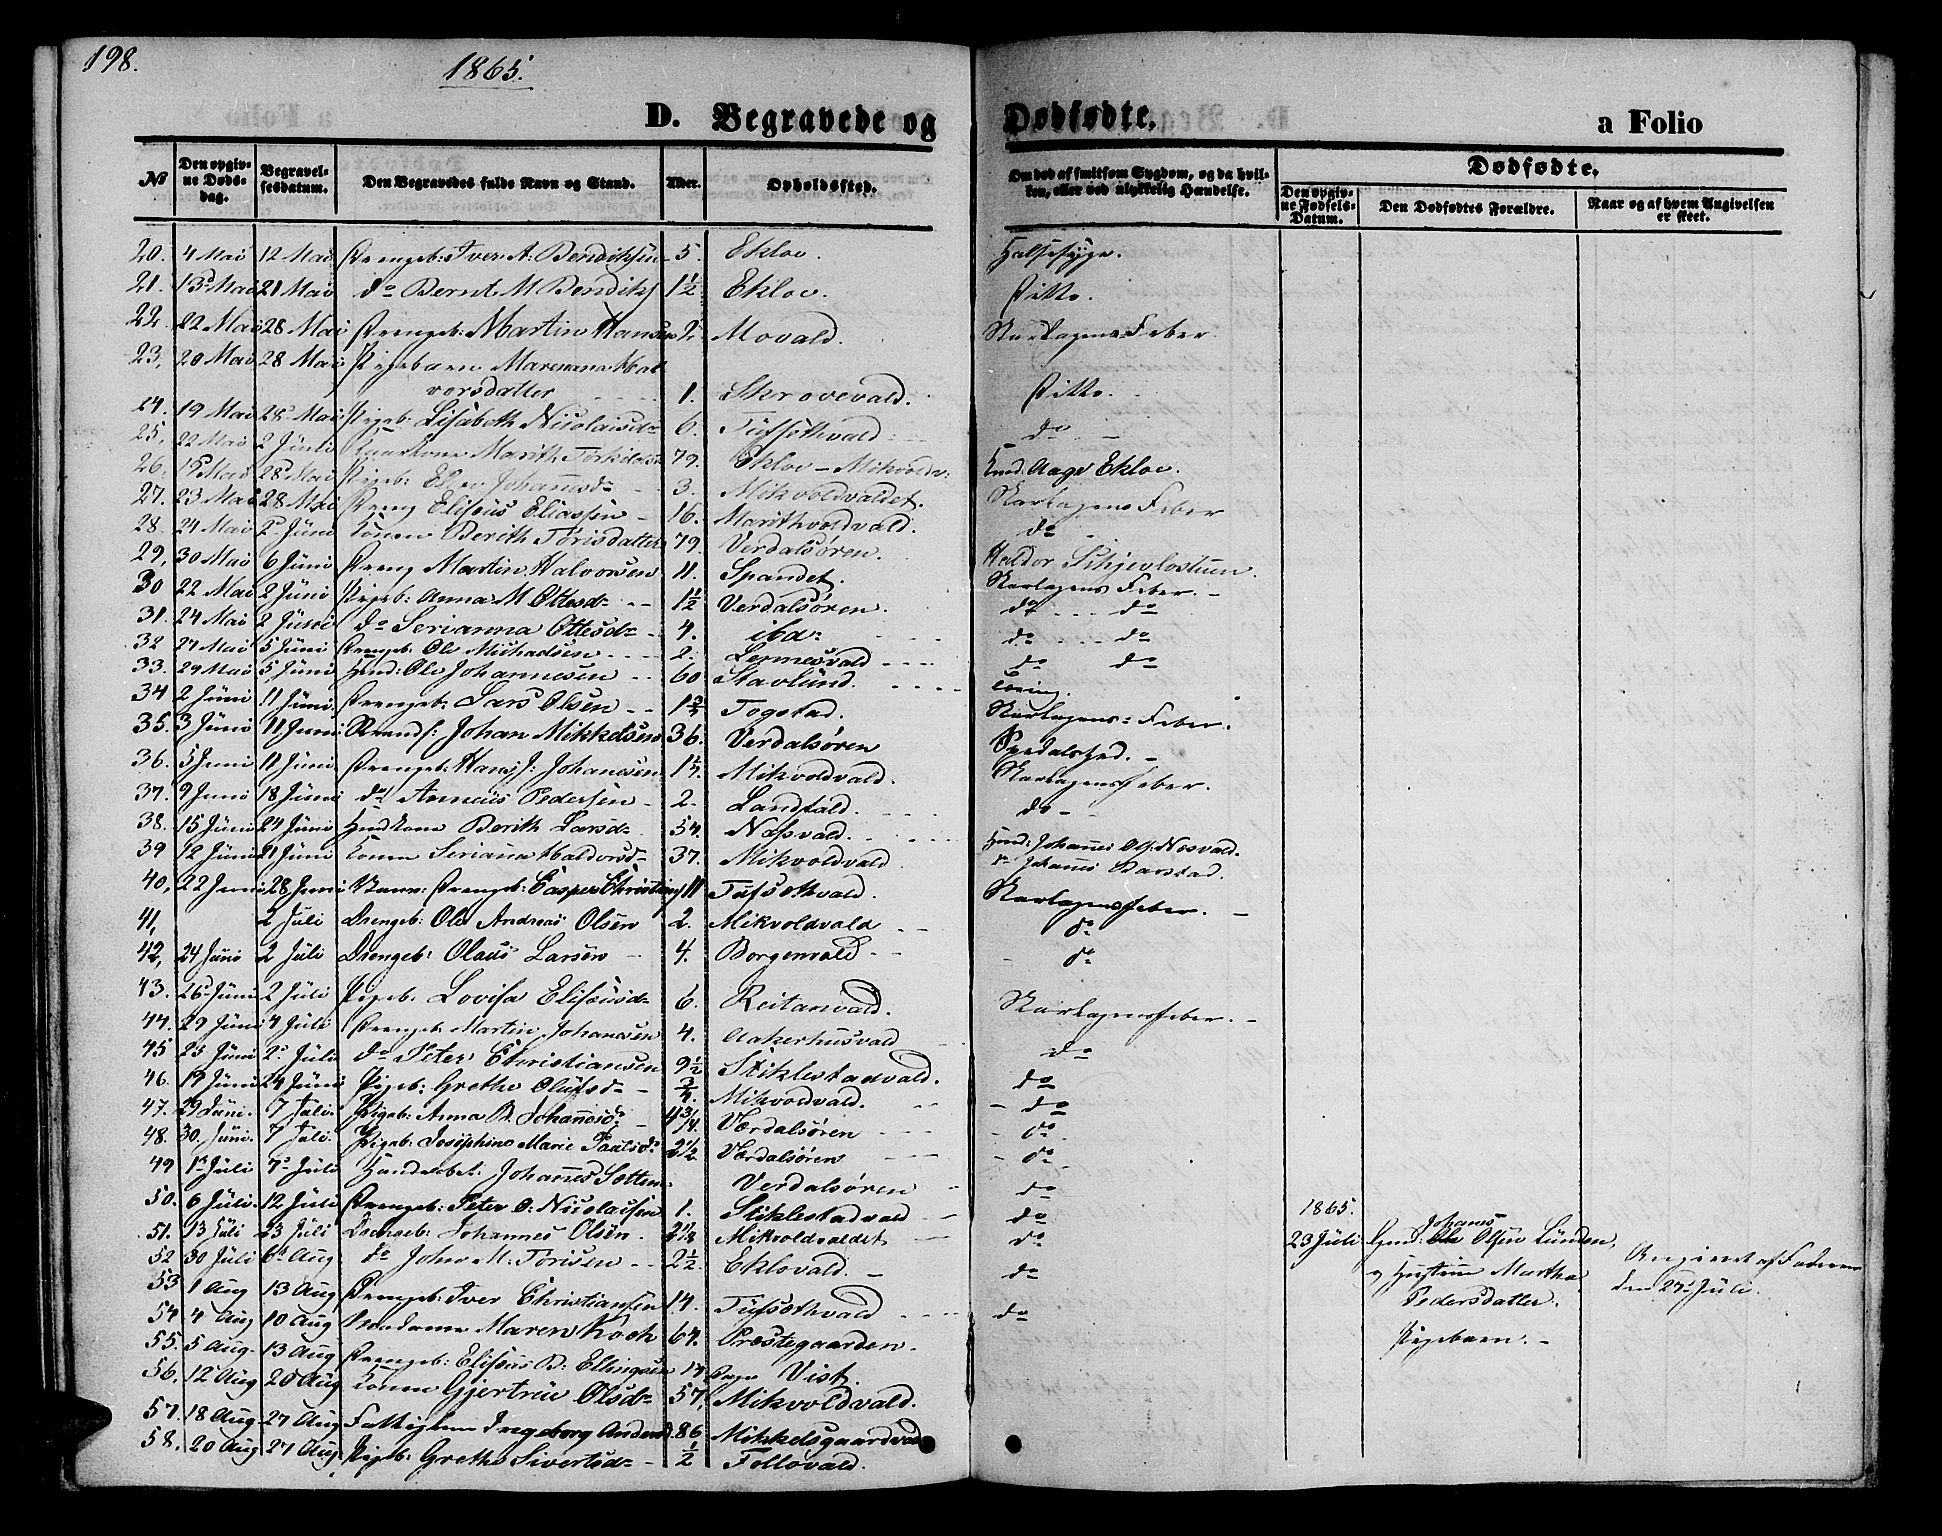 198.
1865.
D. Begravede og Dødfødte.
a Folio
No
Den opgivne Dødsdag.
Begravelsesdatum.
Den Begravedes fulde Navn og Stand.
Alder.
Opholdssted.
Om død af smitsom Sygdom, og da hvilken, eller ved ulykkelig Hændelse.
Dødfødte.
Den opgivne Fødsels-Datum.
Den Dødfødtes Forældre.
Naar og af hvem Angivelsen er skeet.
20. 4 Mai 12 Mai Drengeb: Iver A: Bendiksen 5. Ekloe. Halsesyge.
21. 13 Mai 21 Mai do Bernt M Bendiks 1½ Ekloe. Ditto.
22. 22 Mai 28 Mai Drengeb: Martin Hansen 2. Movald. Skarlagens Feber.
23, 20 Mai 28 Mai Pigebarn Marenana Hal
vorsdatter 1. Skrovevald. Ditto.
24. 19 Mai 28 Mai Pigeb: Lisabeth Nicolaisd. 6. Tussethvald do
25, 22 Mai 2 Juni Kaarkone Marith Torkilds 79. Ekloe - Mikvoldv: Huusm. Aage Ekloe.
26. 19 Mai 28 Mai Pigeb: Ellen Johannesd. 3. Mikvoldvaldet. Skarlagens Feber
27. 23 Mai 28 Mai Dreng Eliseus Eliassen 16. Marithvoldvald. do
28. 24 Mai 2 Juni Konen Berith Torisdatter 79. Verdalsøren. Haldor Skjevlostuen.
29, 30 Mai 6 Juni Dreng Martin Halvorsen 11. Spandet. Skarlagens Feber.
30 22 Mai 2 Juni Pigeb: Anna M Ottesd. 1½ Verdalsøren. do do
31. 24 Mai 2 Juni do Serianna Ottesd. 4. ibd. do do
32 27 Mai 5 Juni Drengeb: Ole Michaelsen 2. Lennesvald do do
33. 29 Mai 5 Juni Huusm: Ole Johannesen 60 Stavlund.
34 2 Juni 11 Juni Drengeb: Lars Olsen 1¾ Togstad. Skarlagens-Feber.
35. 3 Juni 11 Juni Strands: Johan Mikkelsen 36. Verdalsøren Spedalskhed.
36. 5 Juni 11 Juni Drengeb: Hans J: Johannesen 1¼ Mikvoldvald. Skarlagensfeber.
37. 9 Juni 18 Juni do Anneus Pedersen 2. Landfald. do
38. 15 Juni 24 Juni Huuskone Berith Larsd. 54. Nessvald. Huusm: Johannes Ols: Nesvald.
39 12 Juni 21 Juni Konen Seriana Haldorsd. 37. Mikvoldvald. do Johannes Barstad.
40, 22 Juni 28 Juni Vanv: Drengeb: Casper Christians 11 Tussethvald. Skarlagensfeber.
41, 2 Juli Drengeb: Ole Andreas Olsen 2. Mikvoldvald do
42, 24 Juni 2 Juli Drengeb: Olaus Larsen 4. Borgenvald do
43. 26 Juni 2 Juli Pigeb: Lovisa Eliseusd. 6. Reitanvald. Skarlagensfeber.
44. 29 Juni 4 Juli Drengeb: Martin Johannesen 4. Aakerhusvald
45 23 Juni 2 Juli do Peter Christiansen 9½ Stiklestadvald. do
46. 17 Juni 24 Juni Pigeb: Grethe Olufsd. ¾ Mikvoldvald. do
47. 29 Juni. 7 Juli. Pigeb: Anna B. Johannesd. 4¾ Værdalsøren do
48. 30. Juni. 7 Juli. Pigeb: Josephine Marie Paulsd. 2½ Værdalsøren do
49 1 Juli 7 Juli Handelsbet: Johannes Sotten Verdalsøren do
50. 6 Juli. 12 Juli Drengeb: Peter O. Nicolaisen 1. Stiklestadvald do
51. 13 Juli 23 Juli Drengeb: Johannes Olsen. 2⅛ Mikvoldvaldet do
52 30 Juli 6 Aug. do John M. Torisen 2½ Eklovald. do
53 1 Aug 13 Aug Drengeb: Iver Christiansen 14. Tussethvald do
54 4 Aug 10 Aug Madame Maren Koch 67. Præstegaarden.
55. 5 Aug. 13 Aug Drengeb: Eliseus B: Ellingsen 14 Dage Vist.
56. 12 Aug 20 Aug Konen Gjertrue Olsd. 57, Mikvoldvald.
57. 18 Aug 27 Aug Fattiglem Ingeborg Andersd. 86 Mikkelsgaardvald
58. 20 Aug 27 Aug. Pigeb: Grethe Sivertsd. ½ Follovald.
1865.
23 Juli
Johanes
Huusm: Ole Olsen Lunden,
og Hustrue Martha
Pedersdatter.
Pigebarn.
Angivet af Faderen
den 27 Juli.